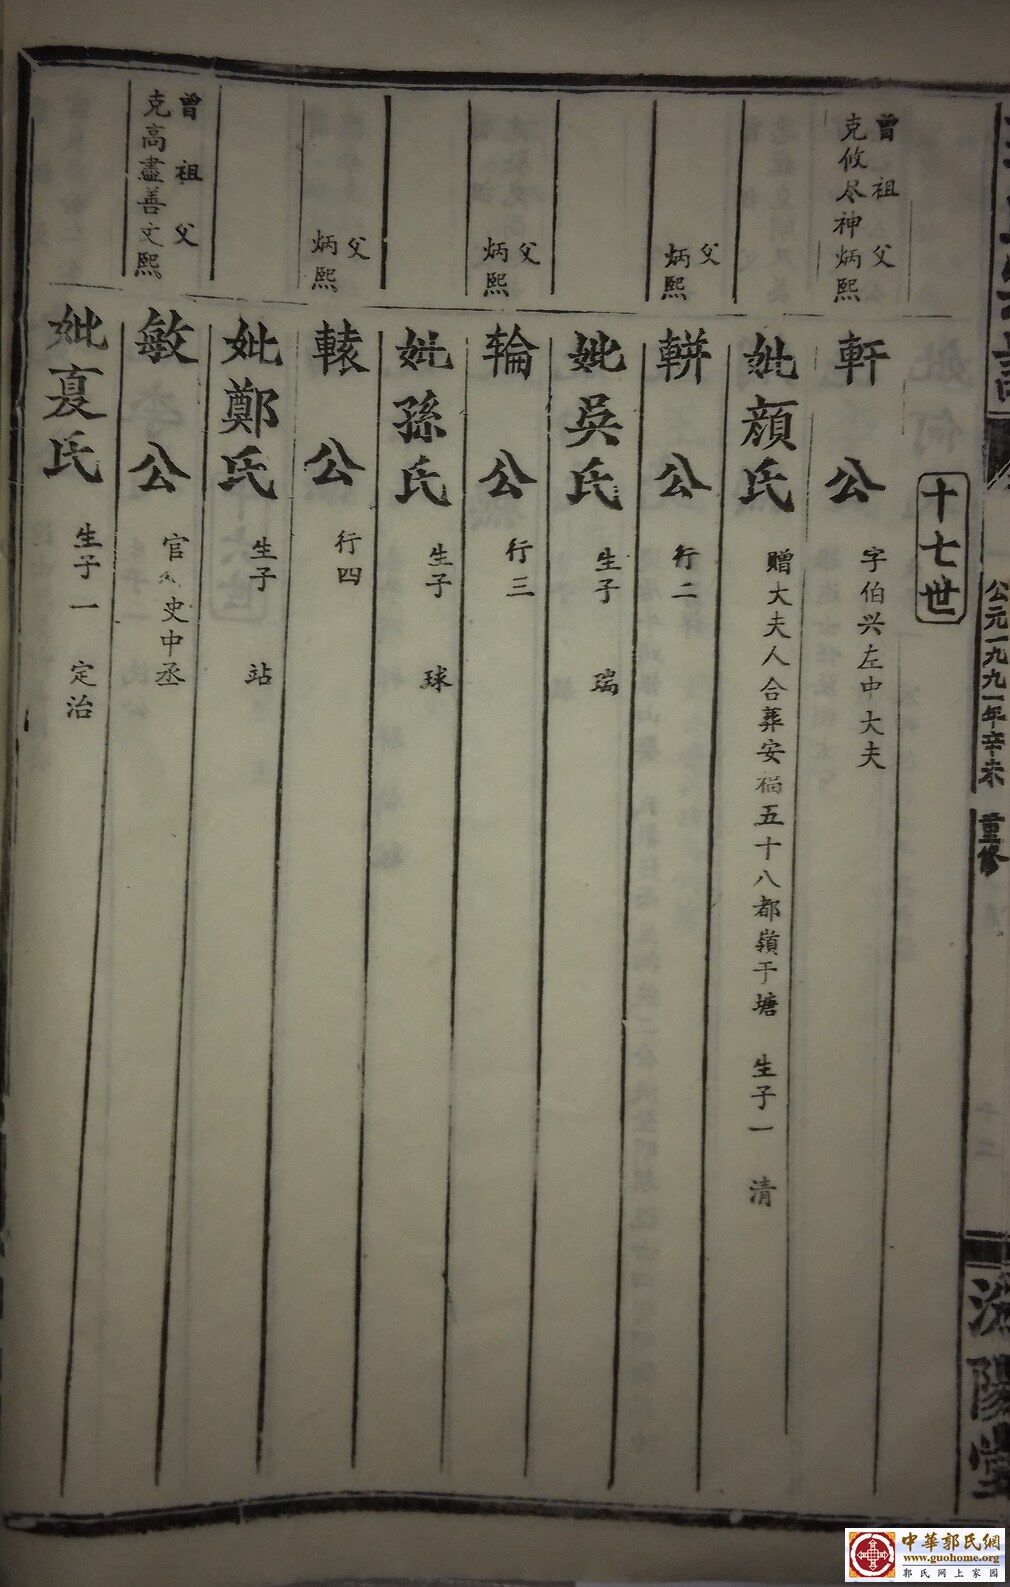 公元一九九一年辛未 重修
汾陽堂
十七世
曾祖父
克攸尽神炳熙
軒公 字伯兴左中大夫
妣顔氏 赠大夫人合葬安福五十八都嶺于塘 生子一 清
父
炳熙
軿公 行二
妣吳氏 生子 瑞
父
炳熙
輪公 行三
妣孫氏 生子 球
父
炳熙
轅公 行四
妣鄭氏 生子 站
曾祖父
克高盡善文熙
敏公 官 史中丞
妣夏氏 生子一 定治
中華郭氏網
www.guohome.org
郭氏网上家园